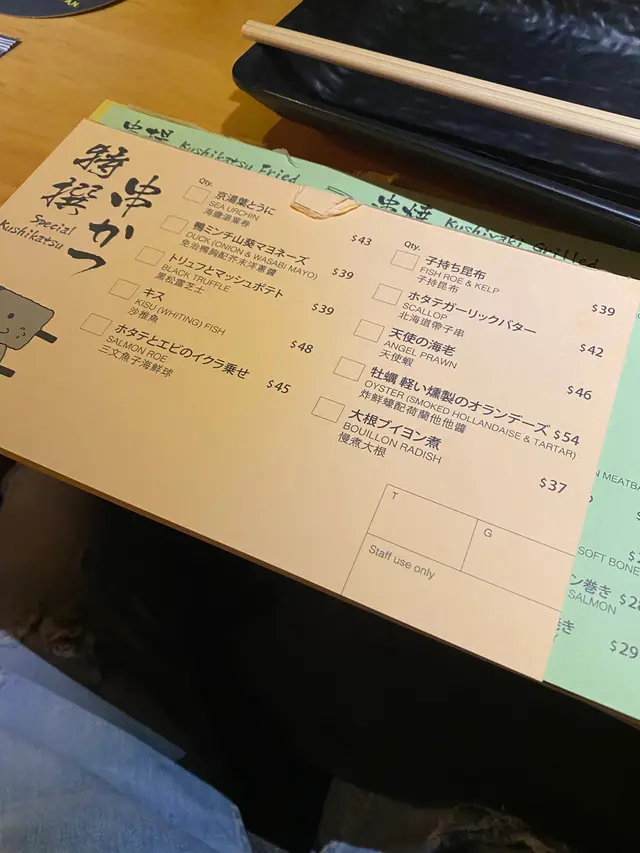 串揚 Kushikatsu Fried
串焼 Kushiyaki Grilled
特撰
串かつ
Special
Kushikatsu
Qty.
京湯葉とうに
SEA URCHIN
海膽湯葉卷
$43
鴨ミンチ山葵マヨネーズ
DUCK (ONION & WASABI MAYO)
免治鴨胸配芥末洋蔥醬
$39
トリュフとマッシュポテト
BLACK TRUFFLE
黑松露芝士
$39
キス
KISU (WHITING) FISH
沙錐魚
$48
ホタテとエビのイクラ乗せ
SALMON ROE
三文魚子海鮮球
$45
Qty.
子持ち昆布
FISH ROE & KELP
子持昆布
$39
ホタテガーリックバター
SCALLOP
北海道帶子串
$42
天使の海老
ANGEL PRAWN
天使蝦
$46
牡蠣 軽い燻製のオランデーズ $54
OYSTER (SMOKED HOLLANDAISE & TARTAR)
炸鮮蠔配荷蘭他他醬
大根ブイヨン煮
BOUILLON RADISH
慢煮大根
$37
T
G
Staff use only
SOFT BONE
ン巻き
SALMON
$29